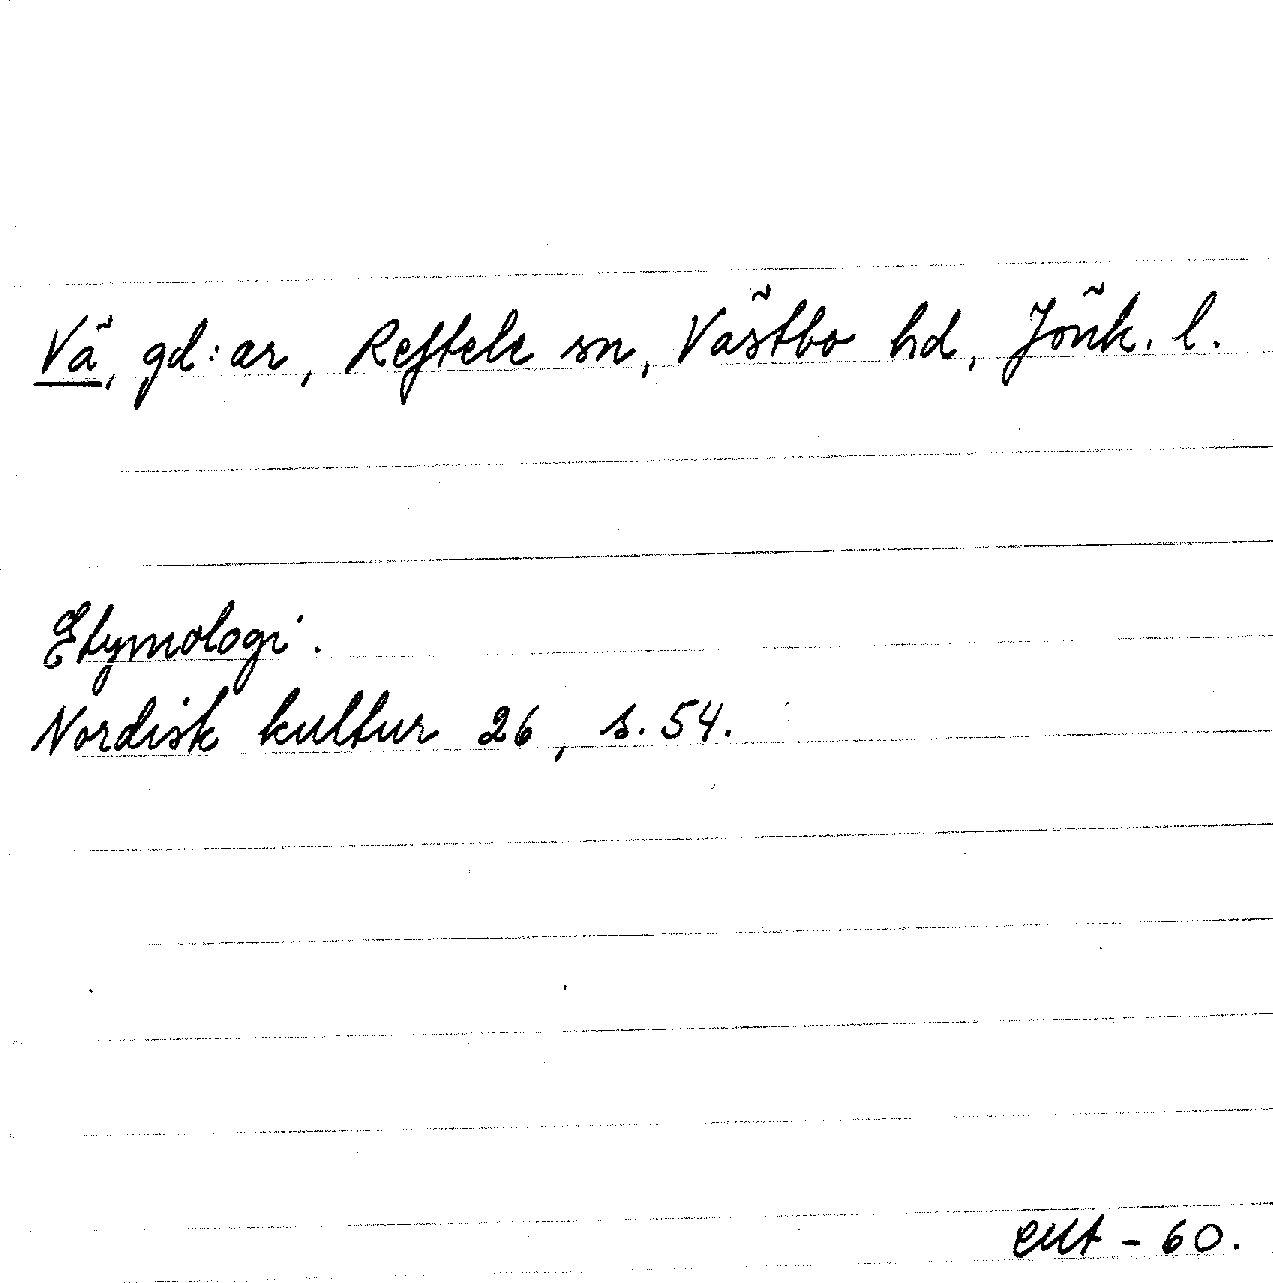 Vä, gd:ar, Reftele sn, Västbo hd, Jönk. l.
Etymologi.
Nordisk kultur 26, s. 54.
- 60.